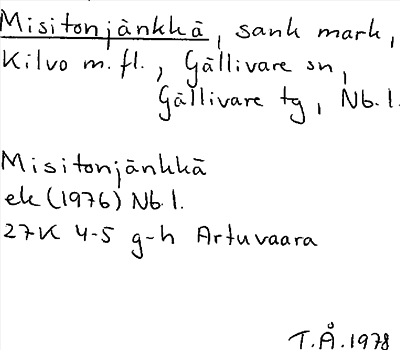 Misitonjänkkä, sank mark,
Kilvo m.fl., Gällivare sn,
Gällivare tg, Nb.l.
Misitonjänkkä
ek (1976) Nb.l.
27K 4-5 g-h Artuvaara
T.Å. 1978